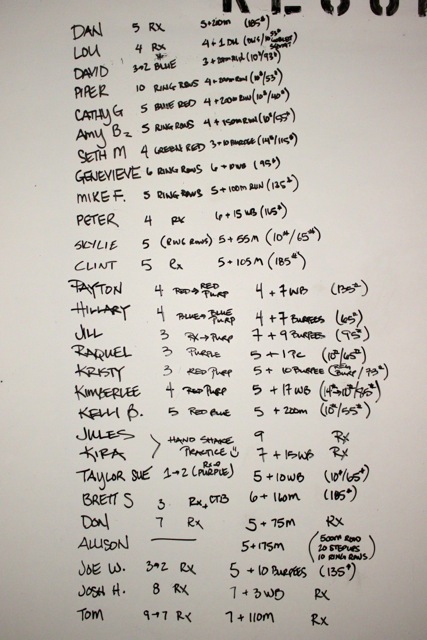 DAN 5 RX 5+210m (185#)
LOU 4 RX 4+1 DU
DAVID 3→2 BLUE 3+
PIPER 10 RING ROWS 4+200m RUN (10#/53#)
CATHY G 5 BLUE RED 4+200m RUN (10#/40#)
AMY B2 5 RING ROWS 4+150m RUN (10#/55#)
SETH M 4 GREEN RED 3+10 BURPEE (14#/115#)
GENEVIEVE 6 RING ROWS 6+10WB (95#)
MIKE F. 5 RING ROWS 5+100m RUN (135#)
PETER 4 RX 6+15 WB (165#)
SKYLIE 5 (RING ROWS) 5+55M (10#/65#)
CLINT 5 RX 5+105M (185#)
PAYTON 4 RED→RED PURP 4+7WB (135#)
HILLARY 4 BLUE→BLUE PURP 4+7 BURPEES (65#)
JILL 3 RX→PURP 7+9 BURPEES (95#)
RAQUEL 3 PURPLE 5+1PC (10#/65#)
KRISTY 3 RED PURP 5+10 BURPEE
KIMBERLEE 4 RED PURP 5+17 WB
KELLI B. 5 RED BLUE 5+200m (10#/55#)
JULES HAND SHAKE 9 RX
KIRA PRACTICE 7+15WB RX
TAYLOR SUE 1→2 (RX→PURPLE) 5+10WB (10#/65#)
BRETT S 3 RX, CTB 6+110m (185#)
DON 7 RX 5+75m RX
ALLISON — 5+175m (500m ROW 20 STEPUPS 10 RING ROWS)
JOE W. 3→2 RX 5+10 BURPEES (135#)
JOSH H. 8 RX 7+3 WB RX
TOM 9→7 RX 7+110m RX